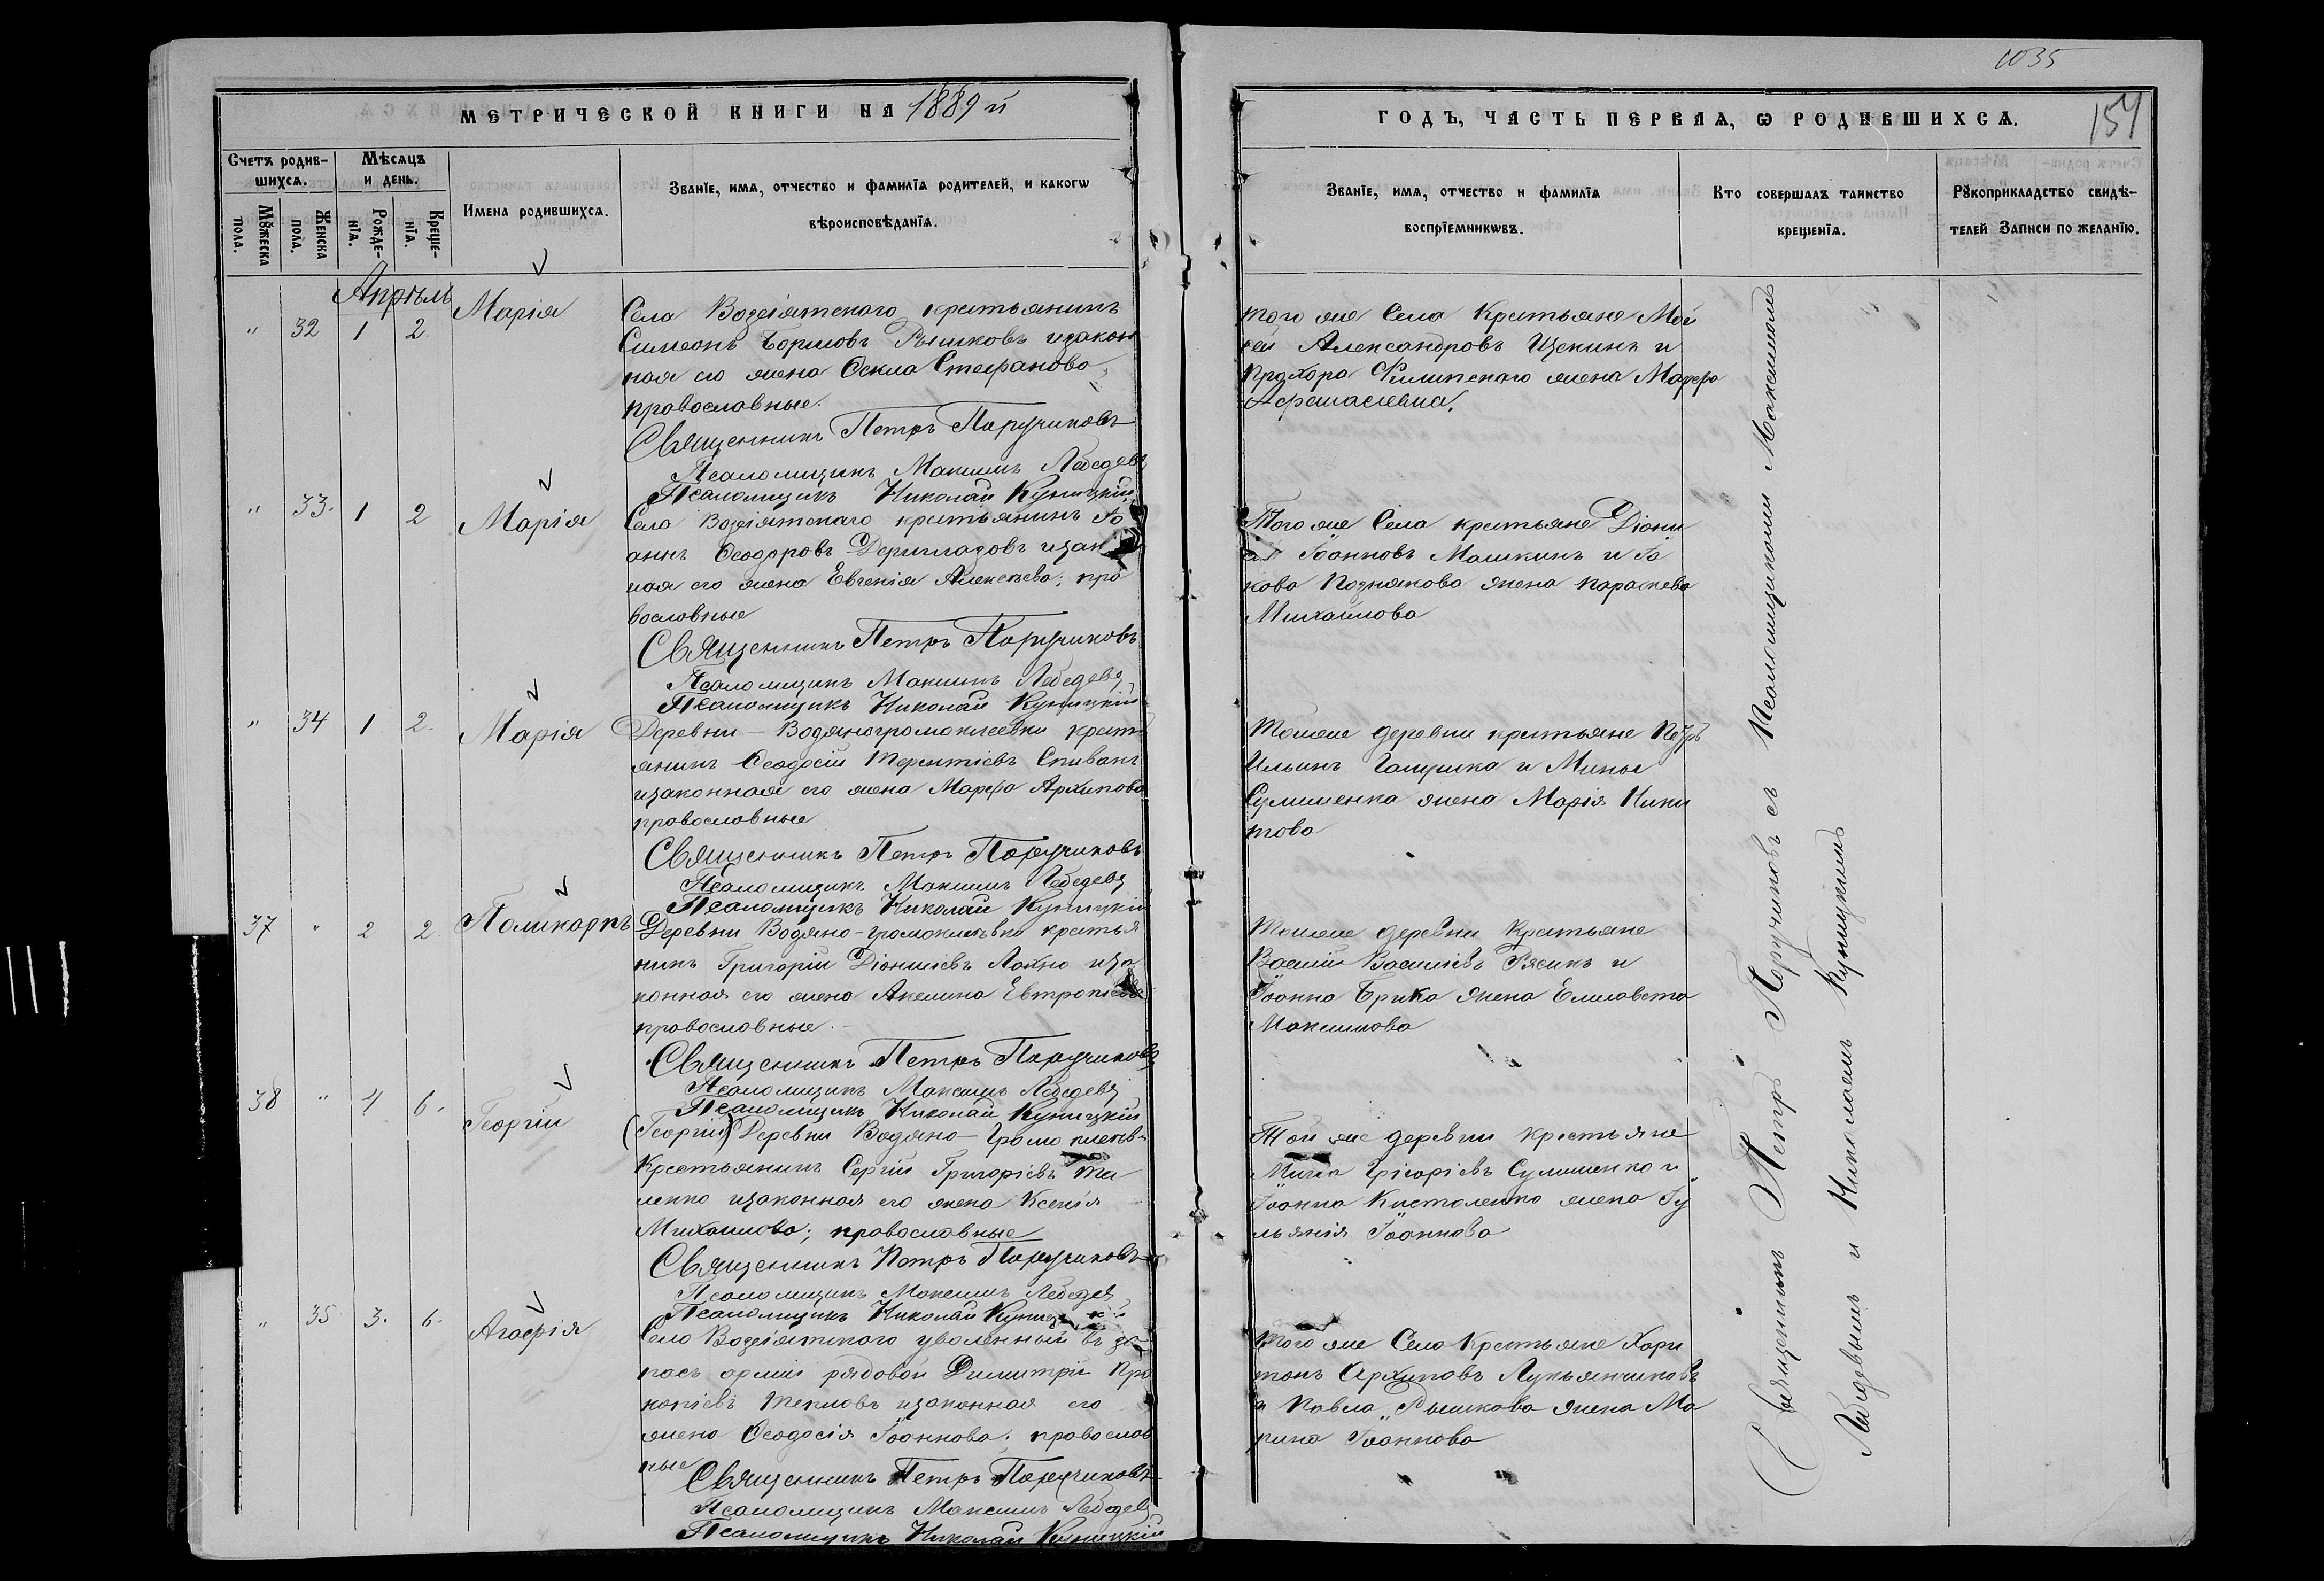 1035
МЕТРИЧЕСКОЙ КНИГИ НА 1889 й
ГОДЪ, ЧАСТЬ ПЕРВАЯ, Ѡ РОДИВШИХСѦ.
154
Счетъ родив-
шихсѧ.
Мѣсѧцъ
и день.
Мꙋжеска
пола.
Женска
пола.
Рожде-
нїѧ.
Креще-
нїѧ.
Имена родившихсѧ.
Званїе, имѧ, отчество и фамилїѧ родителей, и какогѡ
вѣроисповѣданїѧ.
Званїе, имѧ, отчество и фамилїѧ
воспрїемникѡвъ.
Кто совершалъ таинство
крещенїѧ.
Рꙋкоприкладство свидѣ-
телей Записи по желанїю.
Апрѣль
" 32 1 2 Марія
Села Возсіятскаго крестьянинъ
Симеонъ Рышковъ изакон
ная его жена Ѳекла Стефанова
православные.
Священникъ Петръ Поручиковъ
Псаломщикъ Максимъ Лебедевъ
Псаломщикъ Николай Куницкій
того же Села Крестьяне Мой
сей Александровъ Щекинъ и
Прохора жена Марфа
" 33. 1 2 Марія
Села Возсіятскаго крестьянинъ Іо
аннъ Ѳеодоровъ Дериглазовъ изакон
ная его жена Евгенія Алексѣева; пра
вославные
Священникъ Петръ Поручиковъ
Псаломщикъ Максимъ Лебедевъ
Псаломщикъ Николай Куницкій
Того же Села крестьяне Діони
сій Іоанновъ Машкинъ и Іа
кова Познякова жена Параскева
Михайлова
" 34 1 2. Марія
Деревни - Водяногромоклеевки кресть
янинъ Ѳеодосій Терентіевъ Спивакъ
изаконная его жена Марфа Архипова
православные
Священникъ Петръ Поручиковъ
Псаломщикъ Максимъ Лебедевъ
Псаломщикъ Николай Куницкій
Тойже деревни крестьяне Петръ
Ильинъ Галушка и Мины
Сулименка жена Марія Ники
това
37 " 2 2 Поликарпъ
Деревни Водяно-громоклѣевки крестья
нинъ Григорій Діонисіевъ Лахно иза
конная его жена Акелина Евтропіева
православные.
Священникъ Петръ Поручиковъ
Псаломщикъ Максимъ Лебедевъ
Псаломщикъ Николай Куницкій
Тойже деревни Крестьяне
Васілій Василіевъ Рясикъ и
Іоанна Брика жена Елисавета
Максимова
38 " 4 6. Георгій
(Георгій) Деревни Водяно-Громоклеев
Крестьянинъ Сергій Григоріевъ
ленко изаконная его жена Ксенія
Михайлова; православные
Священникъ Петръ Поручиковъ
Псаломщикъ Максимъ Лебедев
Псаломщикъ Николай Куницкій
Той же деревни крестьяне
Мина Грігоріевъ Сулименко и
Іоанна жена Іу
льянія Іоаннова
" 35 3. 6. Агафія
Села Возсіятского уволенный въ за
пасъ арміи рядовой Димитрій Про
копіевъ Тепловъ изаконная его
жена Ѳеодосія Іоаннова; православ
ные
Священникъ Петръ Поручиковъ
Псаломщикъ Максимъ Лебедевъ
Псаломщикъ Николай Куницкій
Того же Села Крестьяне Хари
тонъ Архиповъ Лукьянчиковъ
и Павла Рышкова жена Ма
рина Іоаннова
Священникъ Петръ Поручиковъ съ Псаломщикомъ Максимомъ
Лебедевымъ и Николаемъ Куницкимъ